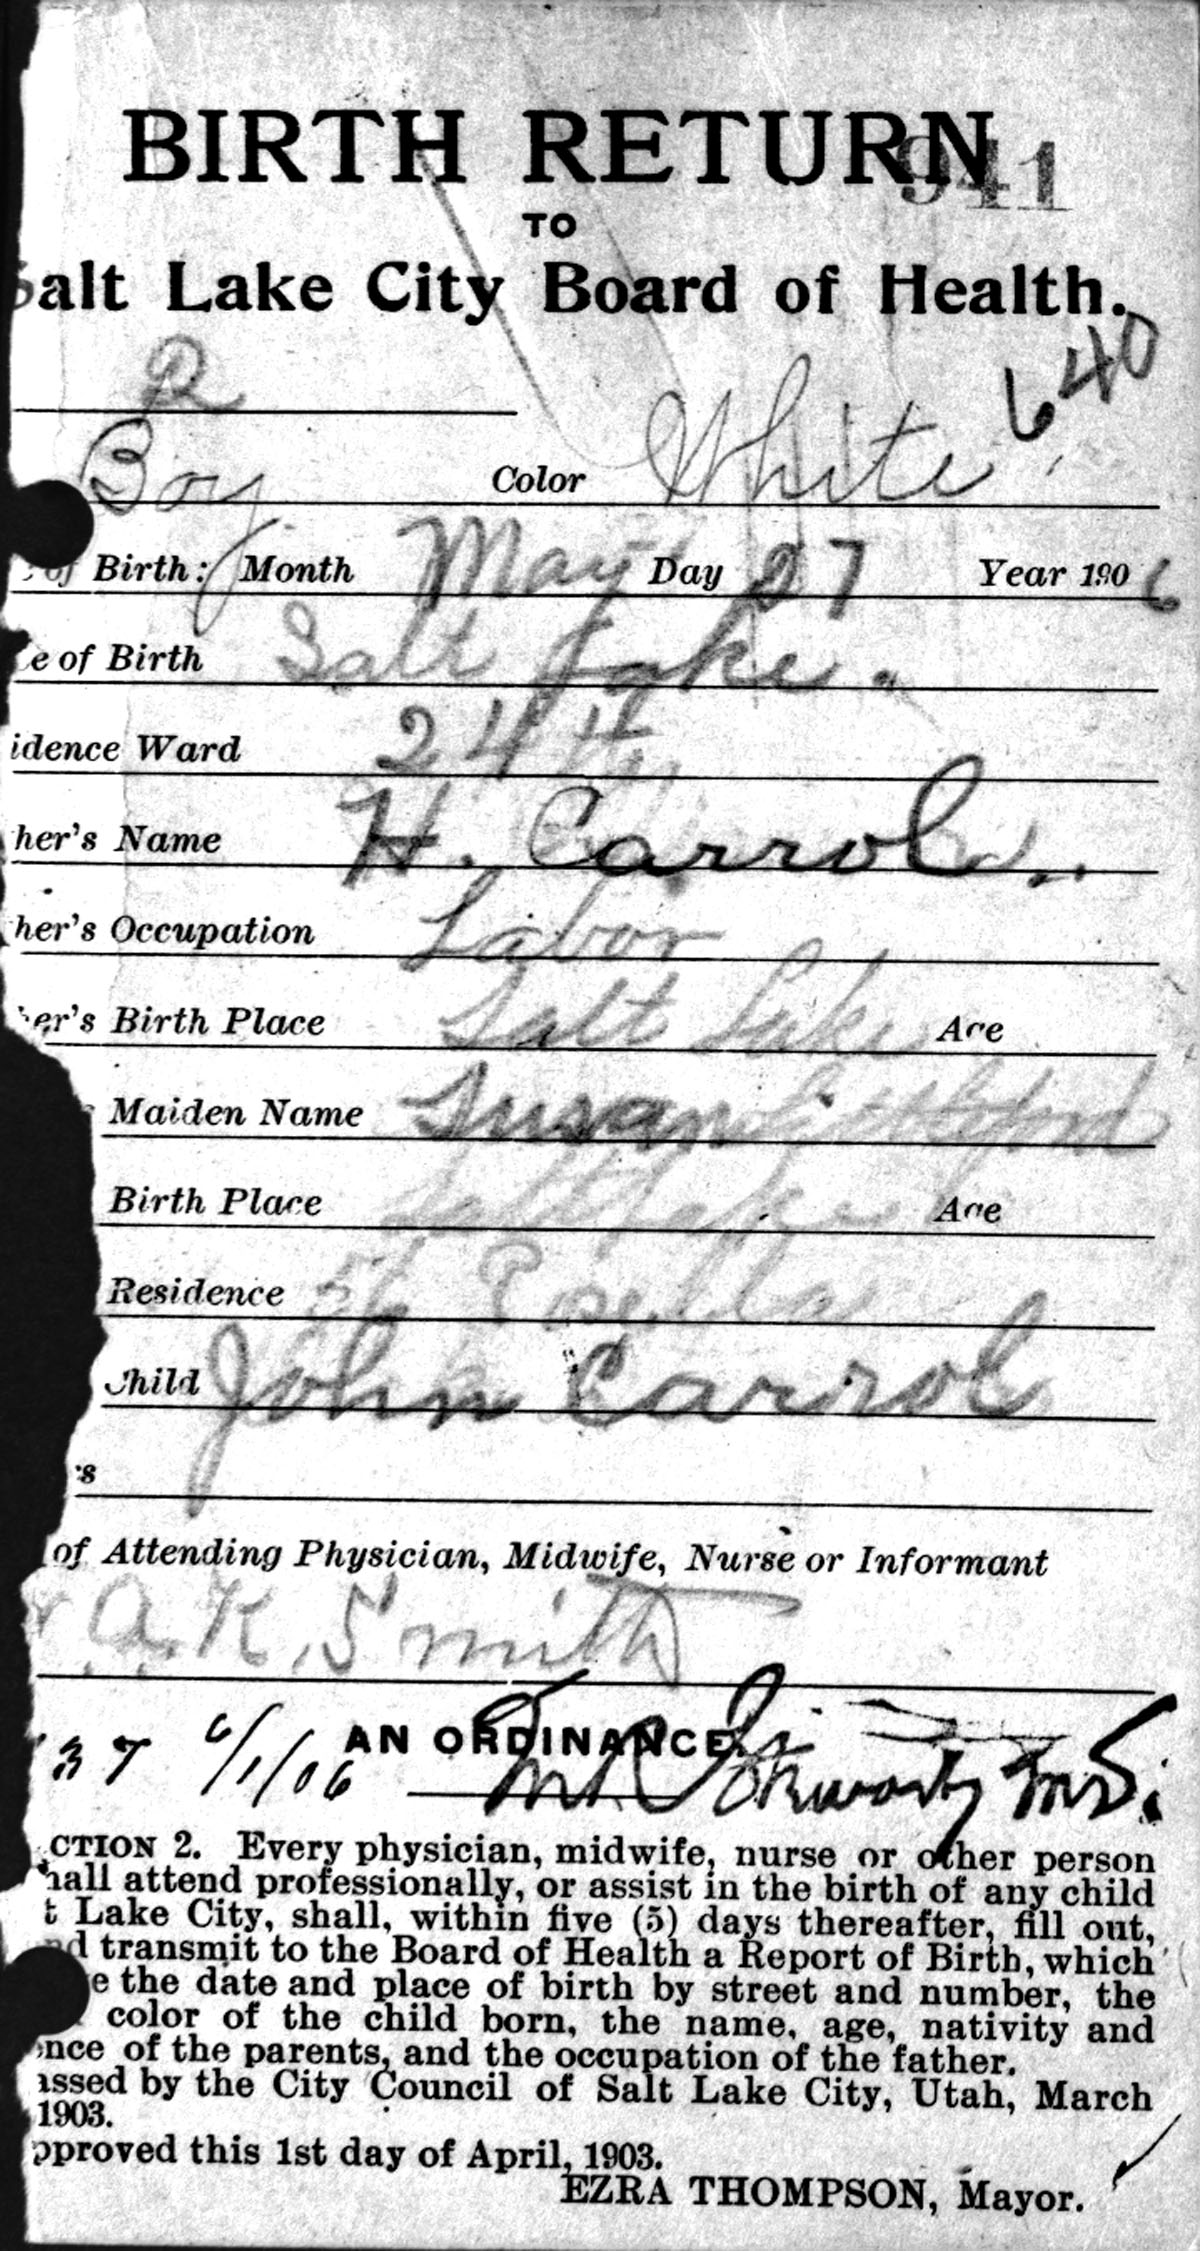 BIRTH RETURN
941
TO
Salt Lake City Board of Health.
640
R
Boy Color White
of Birth: Month May Day 27 Year 1906
e of Birth Salt Lake.
idence Ward 24th
her's Name H. Carrol
her's Occupation Labor
her's Birth Place Salt Lake Age
Maiden Name Susan
Birth Place Salt Lake Age
Residence
Child John Carrol
's
of Attending Physician, Midwife, Nurse or Informant
A. K. Smith
37 6/1/06 M.D.
AN ORDINANCE.
CTION 2. Every physician, midwife, nurse or other person
hall attend professionally, or assist in the birth of any child
t Lake City, shall, within five (5) days thereafter, fill out,
nd transmit to the Board of Health a Report of Birth, which
e the date and place of birth by street and number, the
color of the child born, the name, age, nativity and
ence of the parents, and the occupation of the father.
assed by the City Council of Salt Lake City, Utah, March
1903.
pproved this 1st day of April, 1903.
EZRA THOMPSON, Mayor.